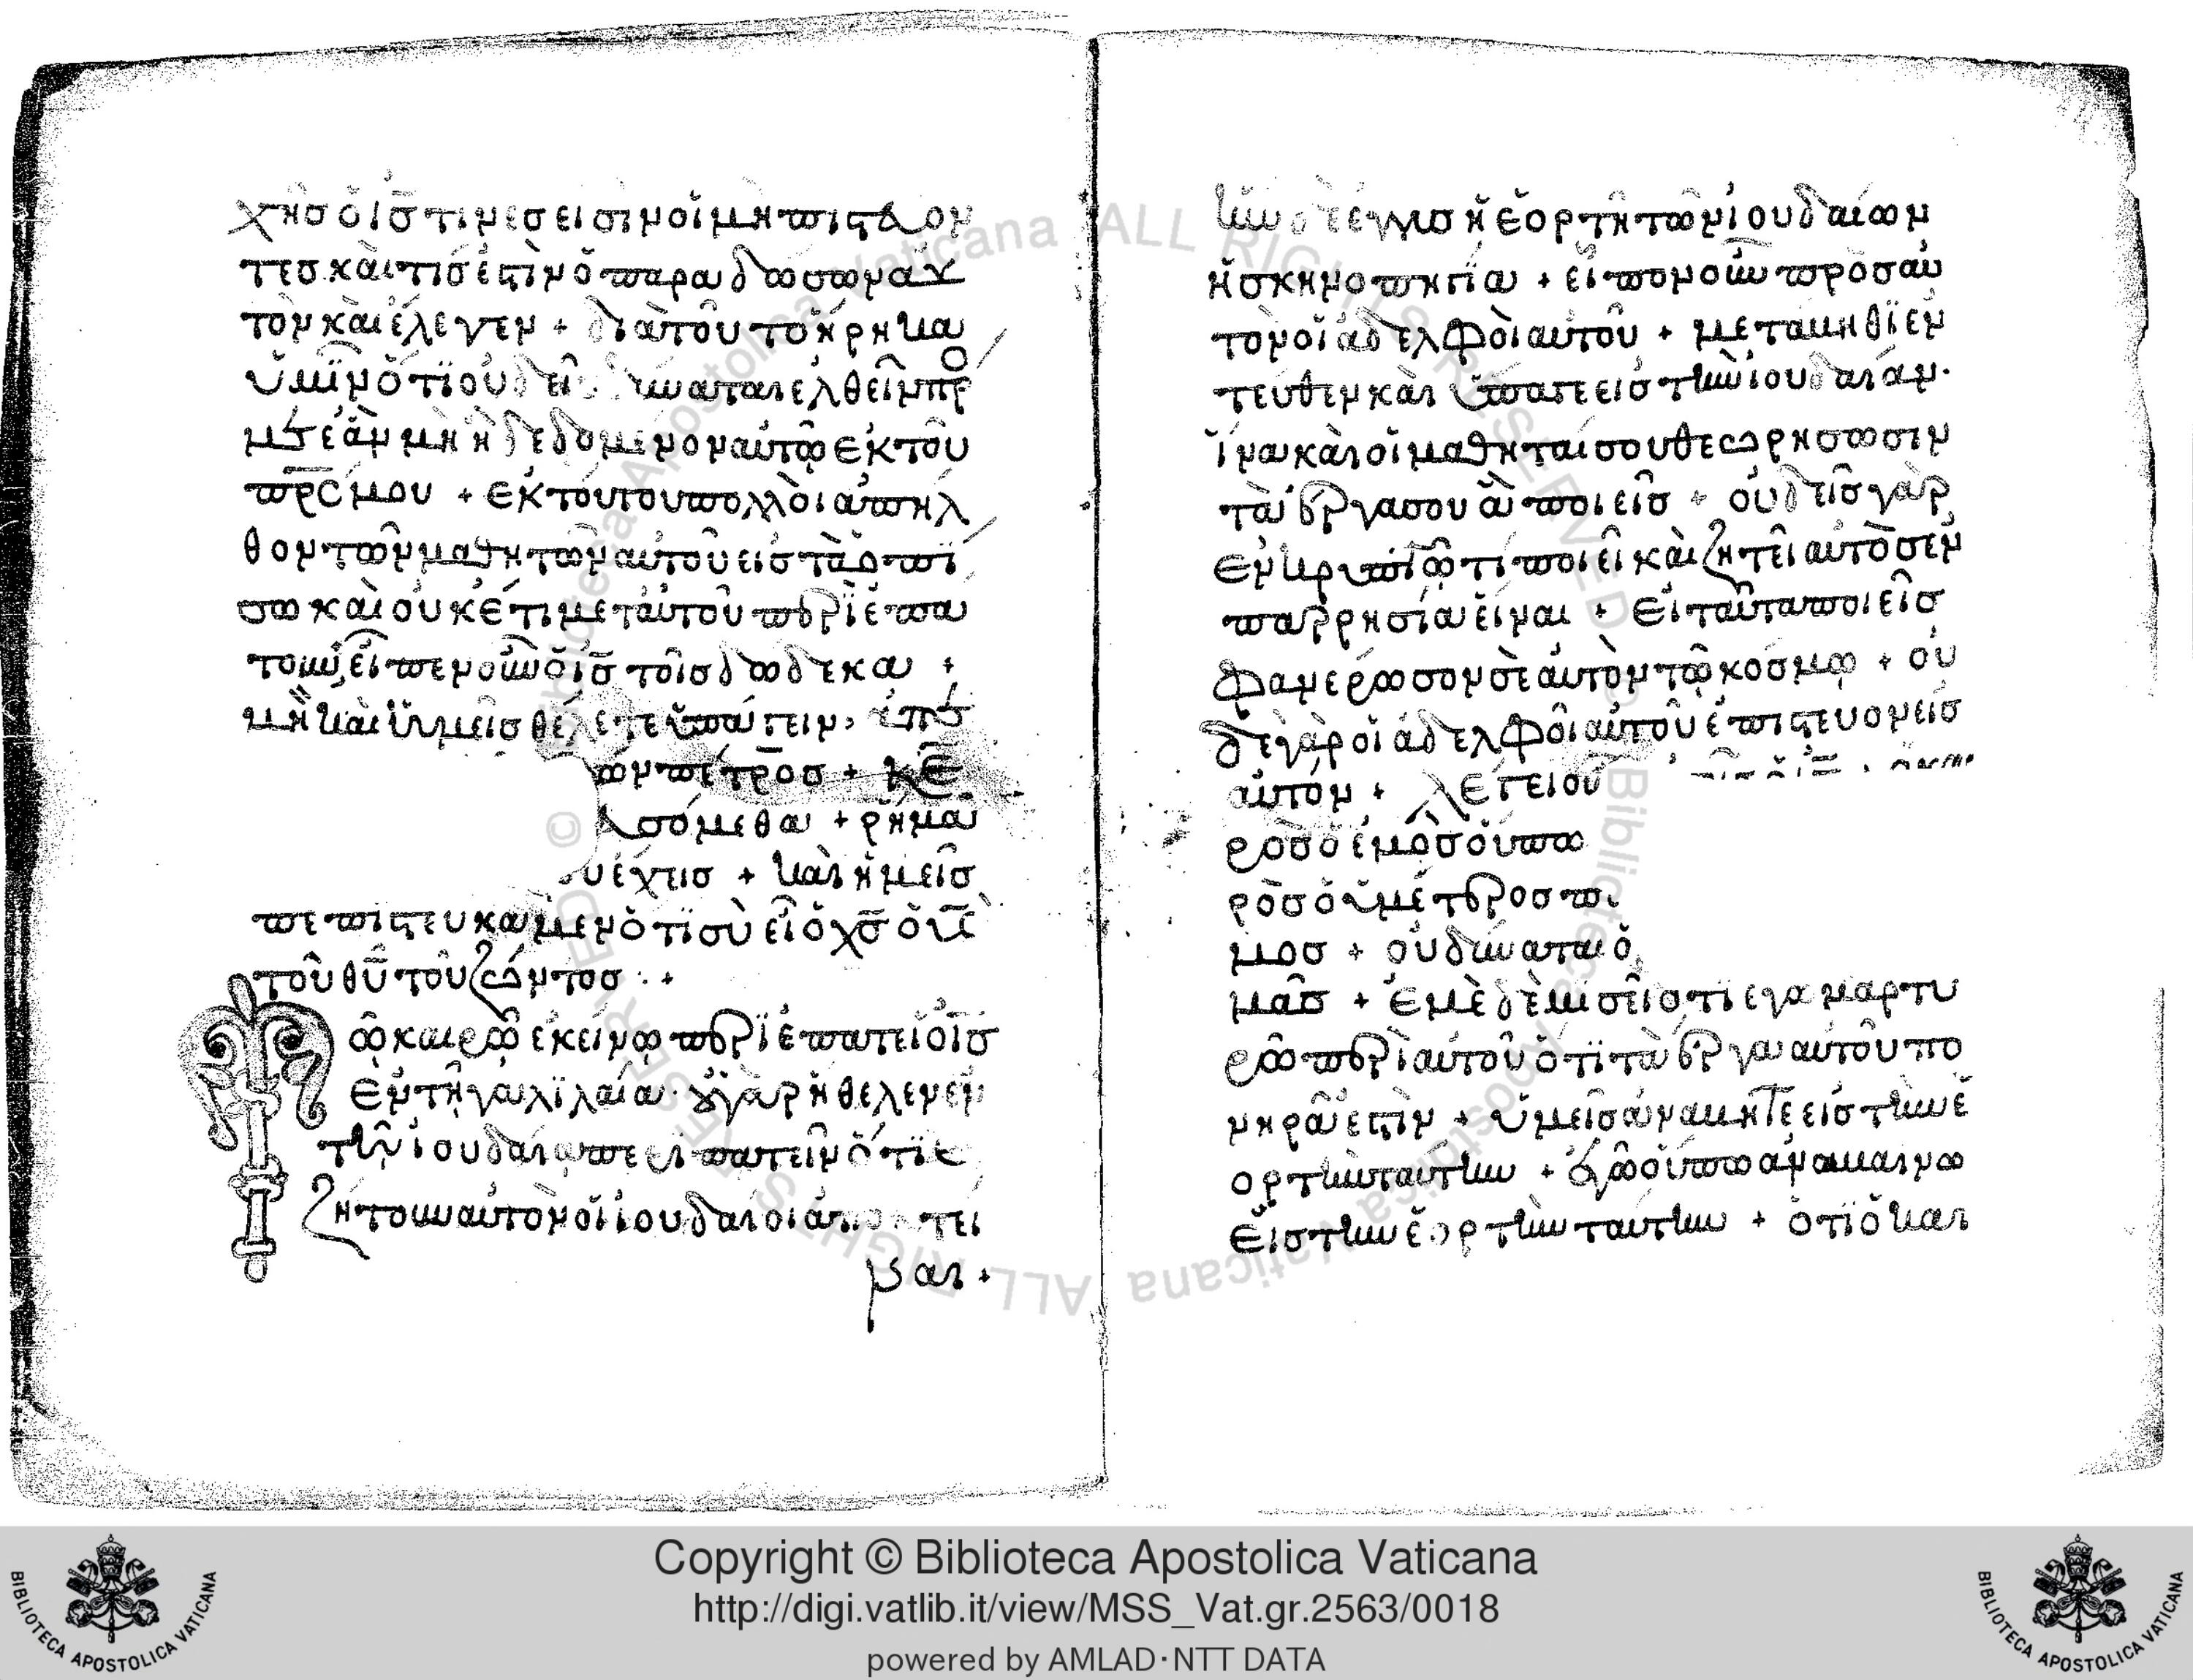 χῆσ ὁ ἰσ τίνεσ εἰσὶν οἱ μὴ πιστεύον
τεσ καὶ τίσ ἐστιν ὁ παραδώσων αὐ
τὸν καὶ ἔλεγεν + διὰ τοῦτο εἴρηκα
ὑμῖν ὅτι οὐδεὶσ δύναται ἐλθεῖν πρό
με ἐὰν μὴ ἦ δεδομένον αὐτῶ ἐκ τοῦ
πρσ μου + ἐκ τούτου πολλοὶ ἀπῆλ
θον τῶν μαθητῶν αὐτοῦ εἰσ τὰ ὀπί
σω καὶ οὐκέτι μετ αὐτοῦ περιεπά
τουν, εἶπεν οὖν ὁ ἰσ τοῖσ δώδεκα +
μὴ καὶ ὑμεῖσ θέλετε ὑπάγειν,
ων πέτροσ + κε
σόμεθα + ῥήμα
έχεισ + καὶ ἡμεῖσ
πεπιστεύκαμεν ὅτι σὺ εἶ ὁ χσ ὁ υσ
τοῦ θυ τοῦ ζῶντοσ :+
Τῶ καιρῶ ἐκείνω περιεπάτει ὁ ἰσ
ἐν τῆ γαλιλαία· οὐ γὰρ ἤθελεν ἐν
τῆ ἰουδαία περιπατεῖν ὅτι ἐ
ζήτουν αὐτὸν οἱ ἰουδαῖοι ἀποκτεῖ
ναι +
ἦν δὲ ἐγγὺσ ἡ ἑορτὴ τῶν ἰουδαίων
ἡ σκηνοπηγία + εἶπον οὖν πρὸσ αὐ
τὸν οἱ ἀδελφοὶ αὐτοῦ + μετάβηθι ἐν
τεῦθεν καὶ ὕπαγε εἰσ τὴν ἰουδαίαν·
ἵνα καὶ οἱ μαθηταί σου θεωρήσωσιν
τὰ ἔργα σου ἃ ποιεῖσ + οὐδεὶσ γὰρ
ἐν κρυπτῶ τι ποιεῖ καὶ ζητεῖ αὐτὸσ ἐν
παρρησία εἶναι + εἰ ταῦτα ποιεῖσ
φανέρωσον σεαυτὸν τῶ κόσμω + οὐ
δὲ γὰρ οἱ ἀδελφοὶ αὐτοῦ ἐπίστευον εἰσ
αὐτόν + λέγει οὖ
ροσ ὁ ἐμὸσ οὔπω
ρὸσ ὁ ὑμέτεροσ π
μοσ + οὐ δύναται ὁ
μᾶσ + ἐμὲ δὲ μισεῖ ὅτι ἐγὼ μαρτυ
ρῶ περὶ αὐτοῦ ὅτι τὰ ἔργα αὐτοῦ πο
νηρά ἐστιν + ὑμεῖσ ἀνάβητε εἰσ τὴν ἑ
ορτὴν ταύτην + ἐγὼ οὔπω ἀναβαίνω
εἰσ τὴν ἑορτὴν ταύτην + ὅτι ὁ και
Copyright © Biblioteca Apostolica Vaticana
http://digi.vatlib.it/view/MSS_Vat.gr.2563/0018
powered by AMLAD·NTT DATA
BIBLIOTECA APOSTOLICA VATICANA
BIBLIOTECA APOSTOLICA VATICANA